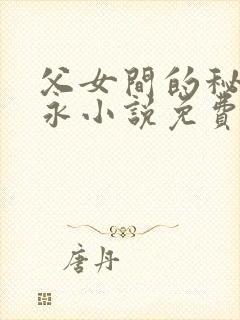 父女間的秘
永小說免費
唐丹